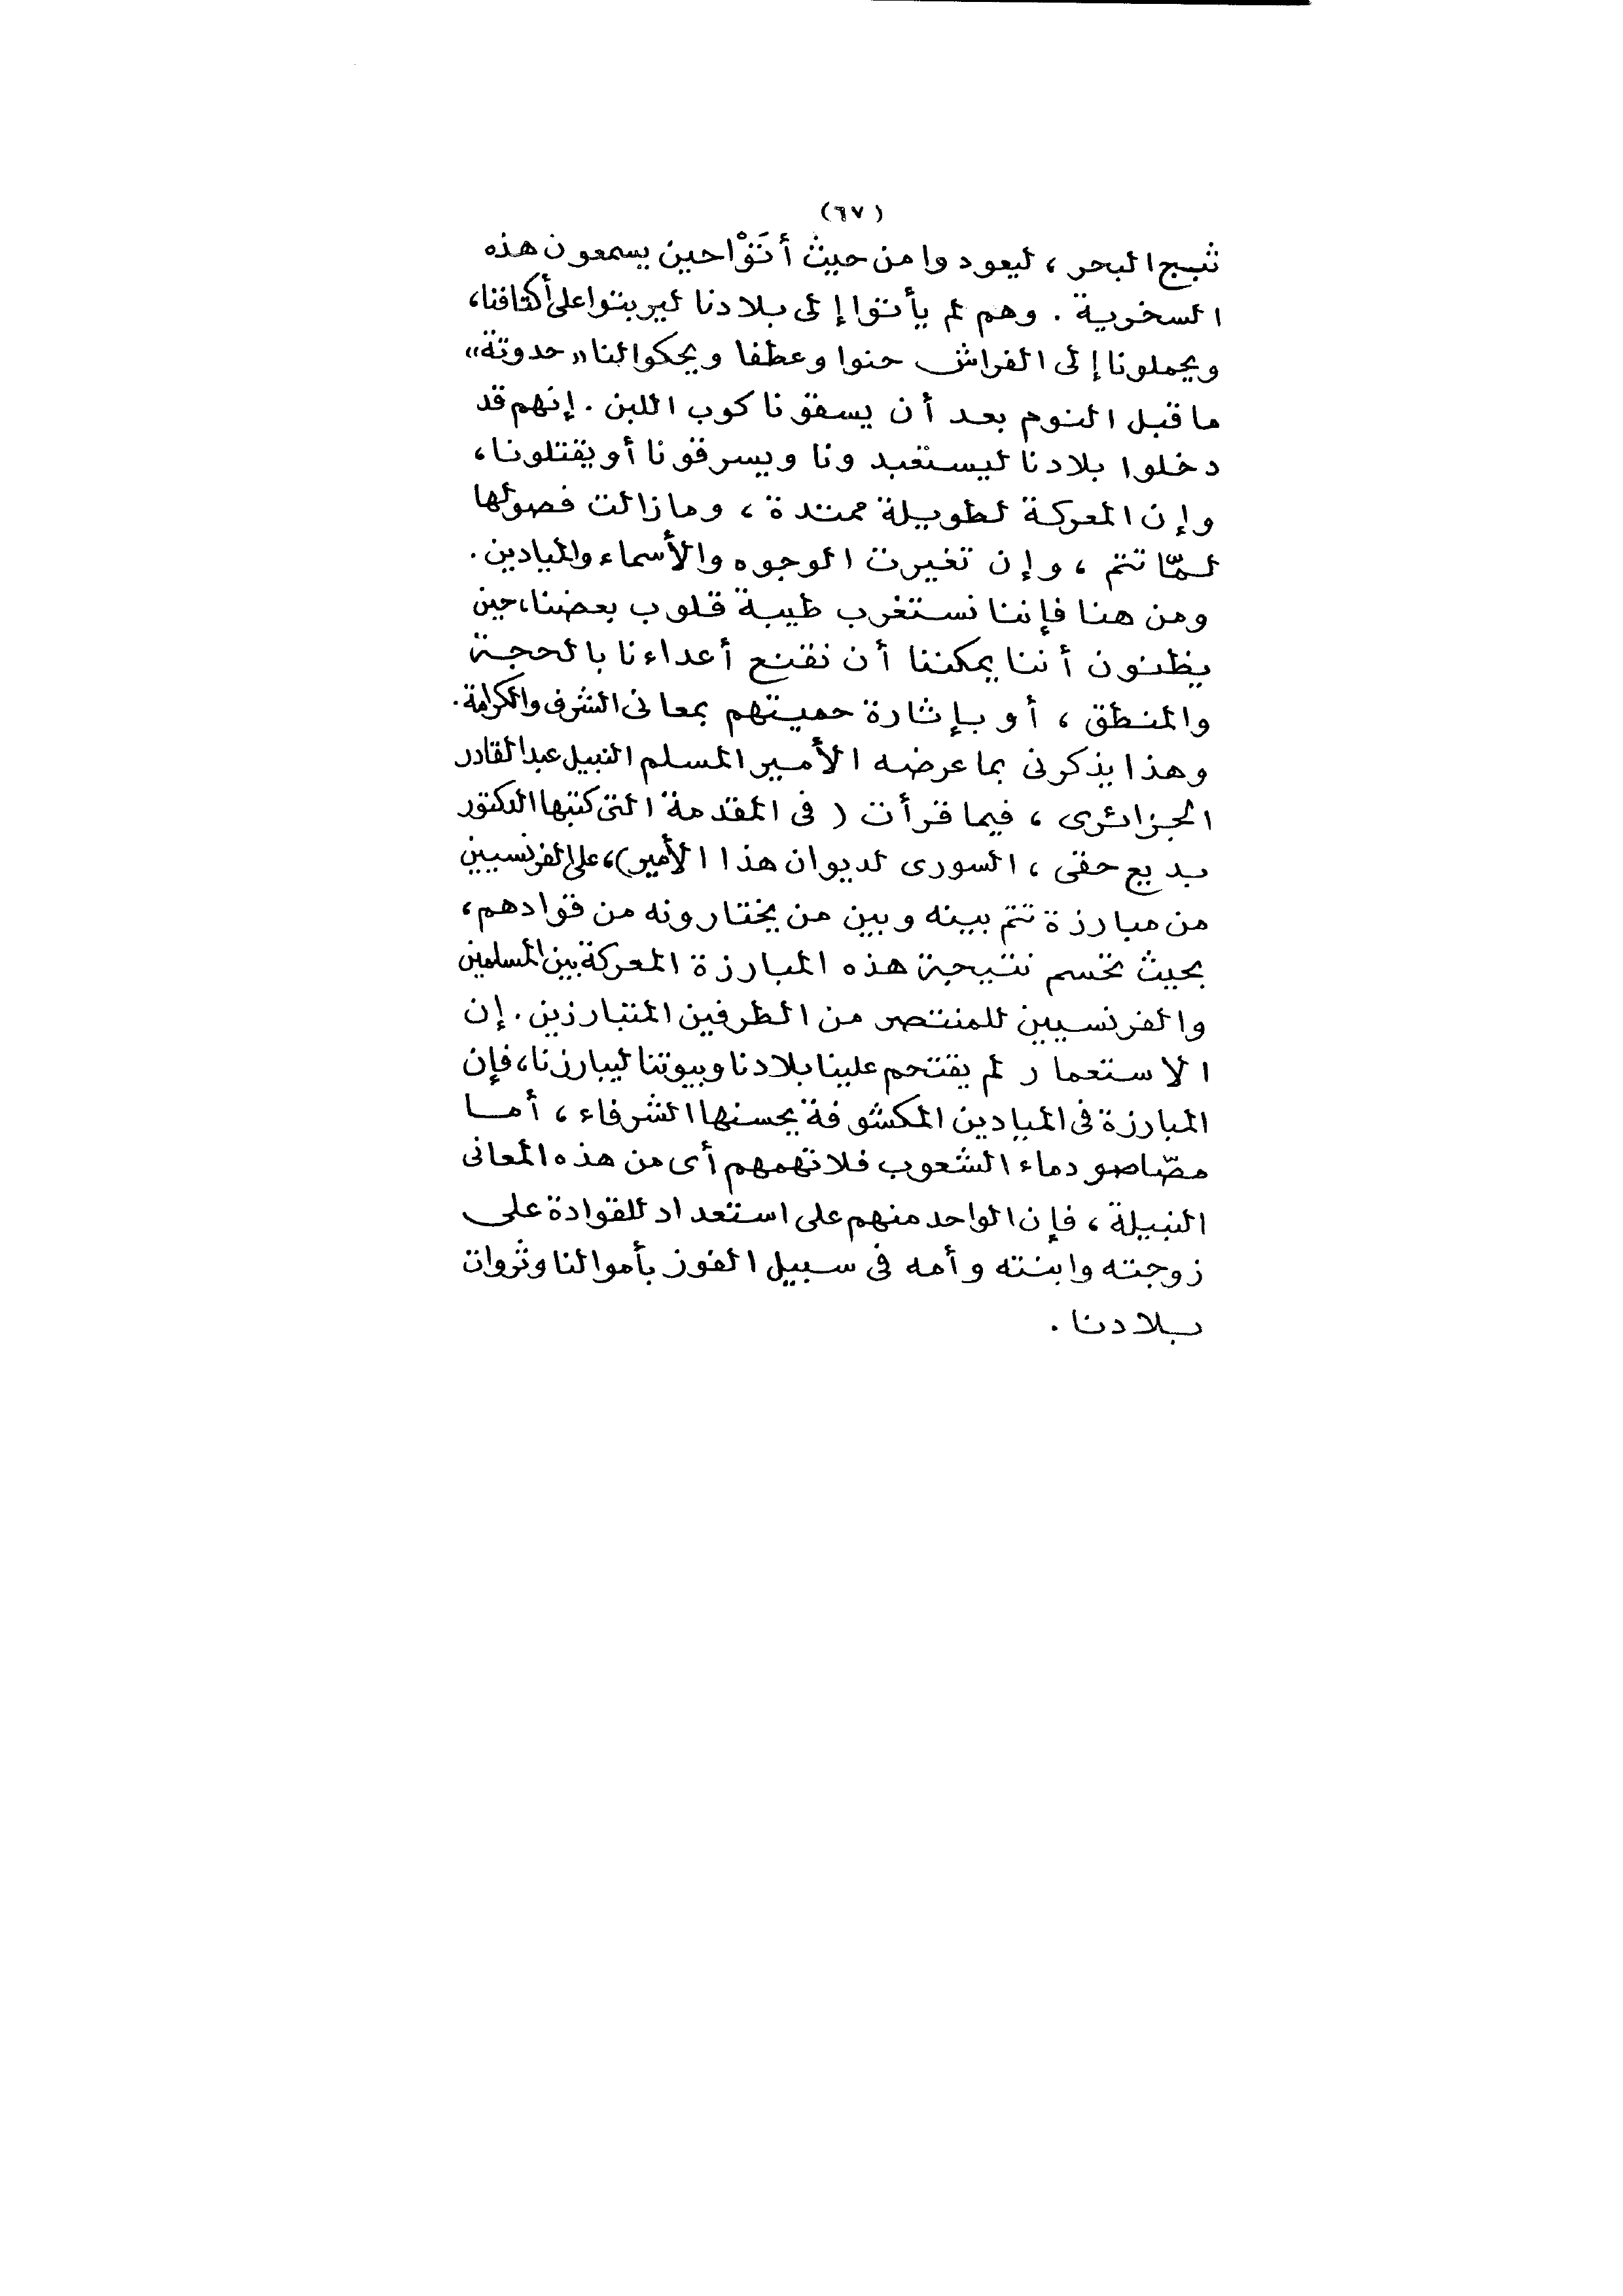 (٦٧)
ثبج البحر ، ليعودوا من حيث أتَوْا حين يسمعون هذه
السخرية . وهم لم يأتوا إلى بلادنا ليربتوا على أكتافنا،
ويحملونا إلى الفراش حنوا وعطفا ويحكوا لنا « حدوتة»
ما قبل النوم بعد أن يسقونا كوب اللبن . إنهم قد
دخلوا بلادنا ليستعبدونا ويسرقونا أو يقتلونا ،
وإن المعركة لطويلة ممتدة ، وما زالت فصولها
لـمّا تتم ، وإن تغيرت الوجوه والأسماء والميادين .
ومن هنا فإننا نستغرب طيبة قلوب بعضنا، حين
يظنون أننا يمكننا أن نقنع أعداءنا بالحجة
والمنطق ، أو بإثارة حميتهم بمعانى الشرف والكرامة .
وهذا يذكرنى بما عرضه الأمير المسلم النبيل عبد القادر
الجزائرى ، فيما قرأت ( فى المقدمة التى كتبها الدكتور
بديع حقى ، السورى لديوان هذا الأمير)، على الفرنسيين
من مبارزة تتم بينه وبين من يختارونه من قوادهم ،
بحيث تحسم نتيجة هذه المبارزة المعركة بين المسلمين
والفرنسيين للمنتصر من الطرفين المتبارزين . إن
الاستعمار لم يقتحم علينا بلادنا وبيوتنا ليبارزنا، فإن
المبارزة فى الميادين المكشوفة يحسنها الشرفاء ، أما
مصّاصو دماء الشعوب فلا تهمهم أى من هذه المعانى
النبيلة ، فإن الواحد منهم على استعداد للقوادة على
زوجته وابنته وأمه فى سبيل الفوز بأموالنا وثروات
بلادنا .